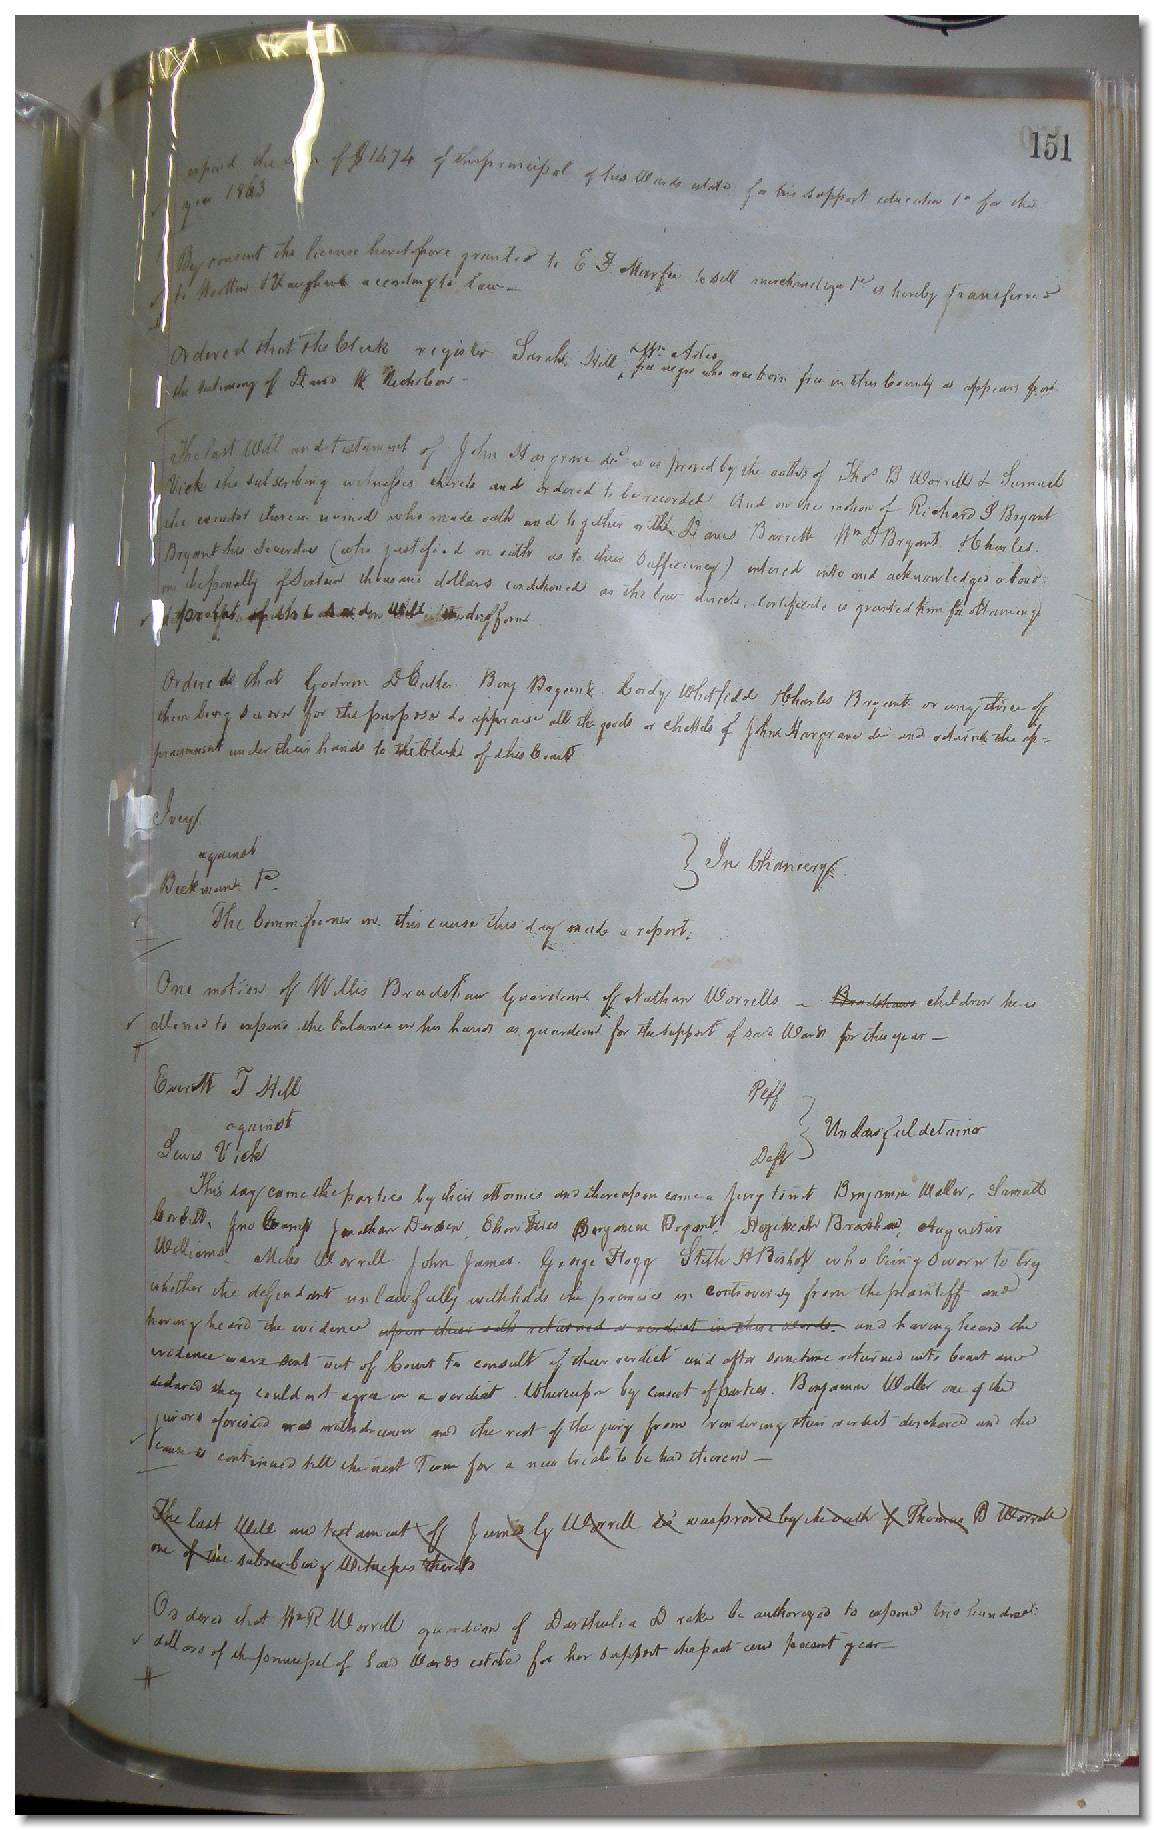 151
expend the sum of $1474 of the principal of his Wards estate for his support education &c for the
year 1863
By consent the license heretofore granted to E D. Murfee to sell merchandize &c is hereby transferred
to Vaughan according to law —
Ordered that the Clerk register Sarah Hill & Wm Artes
free negro who was born free in this County as appears from
the testimony of David W Nicholson —
The last Will and testament of John Hargrave decd was proved by the oaths of Thos B Worrell & Samuel
Vick the subscribing witnesses thereto and ordered to be recorded And on the motion of Richard S Bryant
the executor therein named who made oath and together with Barrett Wm D Bryant & Charles
Bryant his securities (who justified on oath as to their sufficiency) entered into and acknowledged a bond
in the penalty of thousand dollars conditioned as the law directs, Certificate is granted him for obtaining
probat of the said Will in due form
Ordered that Godwin D Butler Benj Bryant Cordy Whitfield & Charles Bryant or any three of
them being sworn for the purpose do appraise all the goods or chattels of John Hargrave dec and return the ap=
praisment under their hands to the Clerk of this Court
Ivey
against
Beekman &c
} In Chancery.
The Commissioner in this cause this day made a report.
One motion of Willis Bradshaw Guardian of Nathan Worrells — Bradshaws children he is
allowed to expend the balance in his hands as guardian for the support of said Wards for this year —
Everitt T Hill Pltff
against } Unlawful detainer
Lewis Vick Deft
This day came the parties by their attornies and thereupon came a Jury to wit Benjamin Waller, Samuel
Corbett, Jno Camp Jonathan Darden, Benjamin Bryant, Hezekiah Bradshaw, Augustus
Williams, Miles Worrell John James. George Fogg Stith H Bishop who being sworn to try
whether the defendant unlawfully withholds the premises in controversy from the plaintiff and
having heard the evidence upon their oath returned a verdict in these words. and having heard the
evidence were sent out of Court to consult of their verdict and after sometime returned into Court and
declared they could not agree in a verdict. Whereupon by consent of parties. Benjamin Waller one of the
jurors aforesaid was withdrawn and the rest of the jury from rendering their verdict discharged and the
cause is continued till the next Term for a new trial to be had therein —
The last Will and testament of James G Worrell decd was proved by the oath of Thomas B Worrell
one of the subscribing Witnesses thereto
Ordered that Wm R Worrell guardian of Darthulia Drake be authorized to expend two hundred
dollars of the principal of said Wards estate for her support the past and present year —